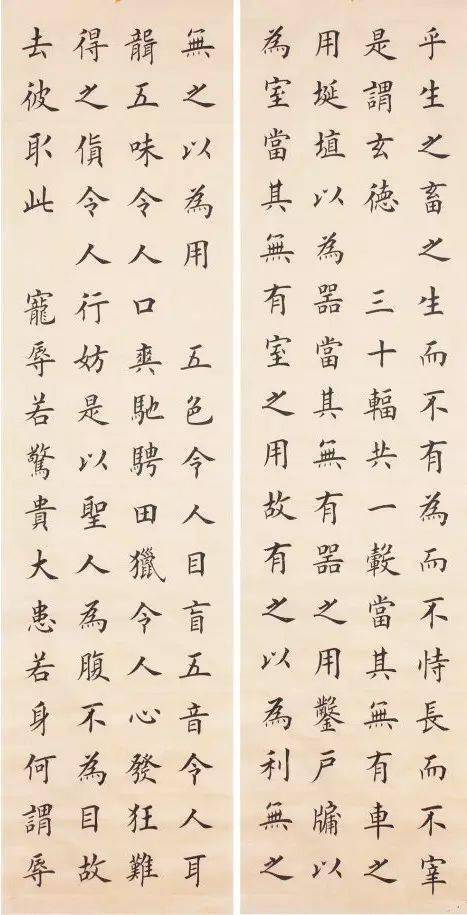 乎生之畜之生而不有為而不恃長而不宰
是謂玄德 三十輻共一轂當其無有車之
用埏埴以為噐當其無有噐之用鑿戶牖以
為室當其無有室之用故有之以為利無之
無之以為用 五色令人目盲五音令人耳
聾五味令人口爽馳騁田獵令人心發狂難
得之貨令人行妨是以聖人為腹不為目故
去彼取此 寵辱若驚貴大患若身何謂辱